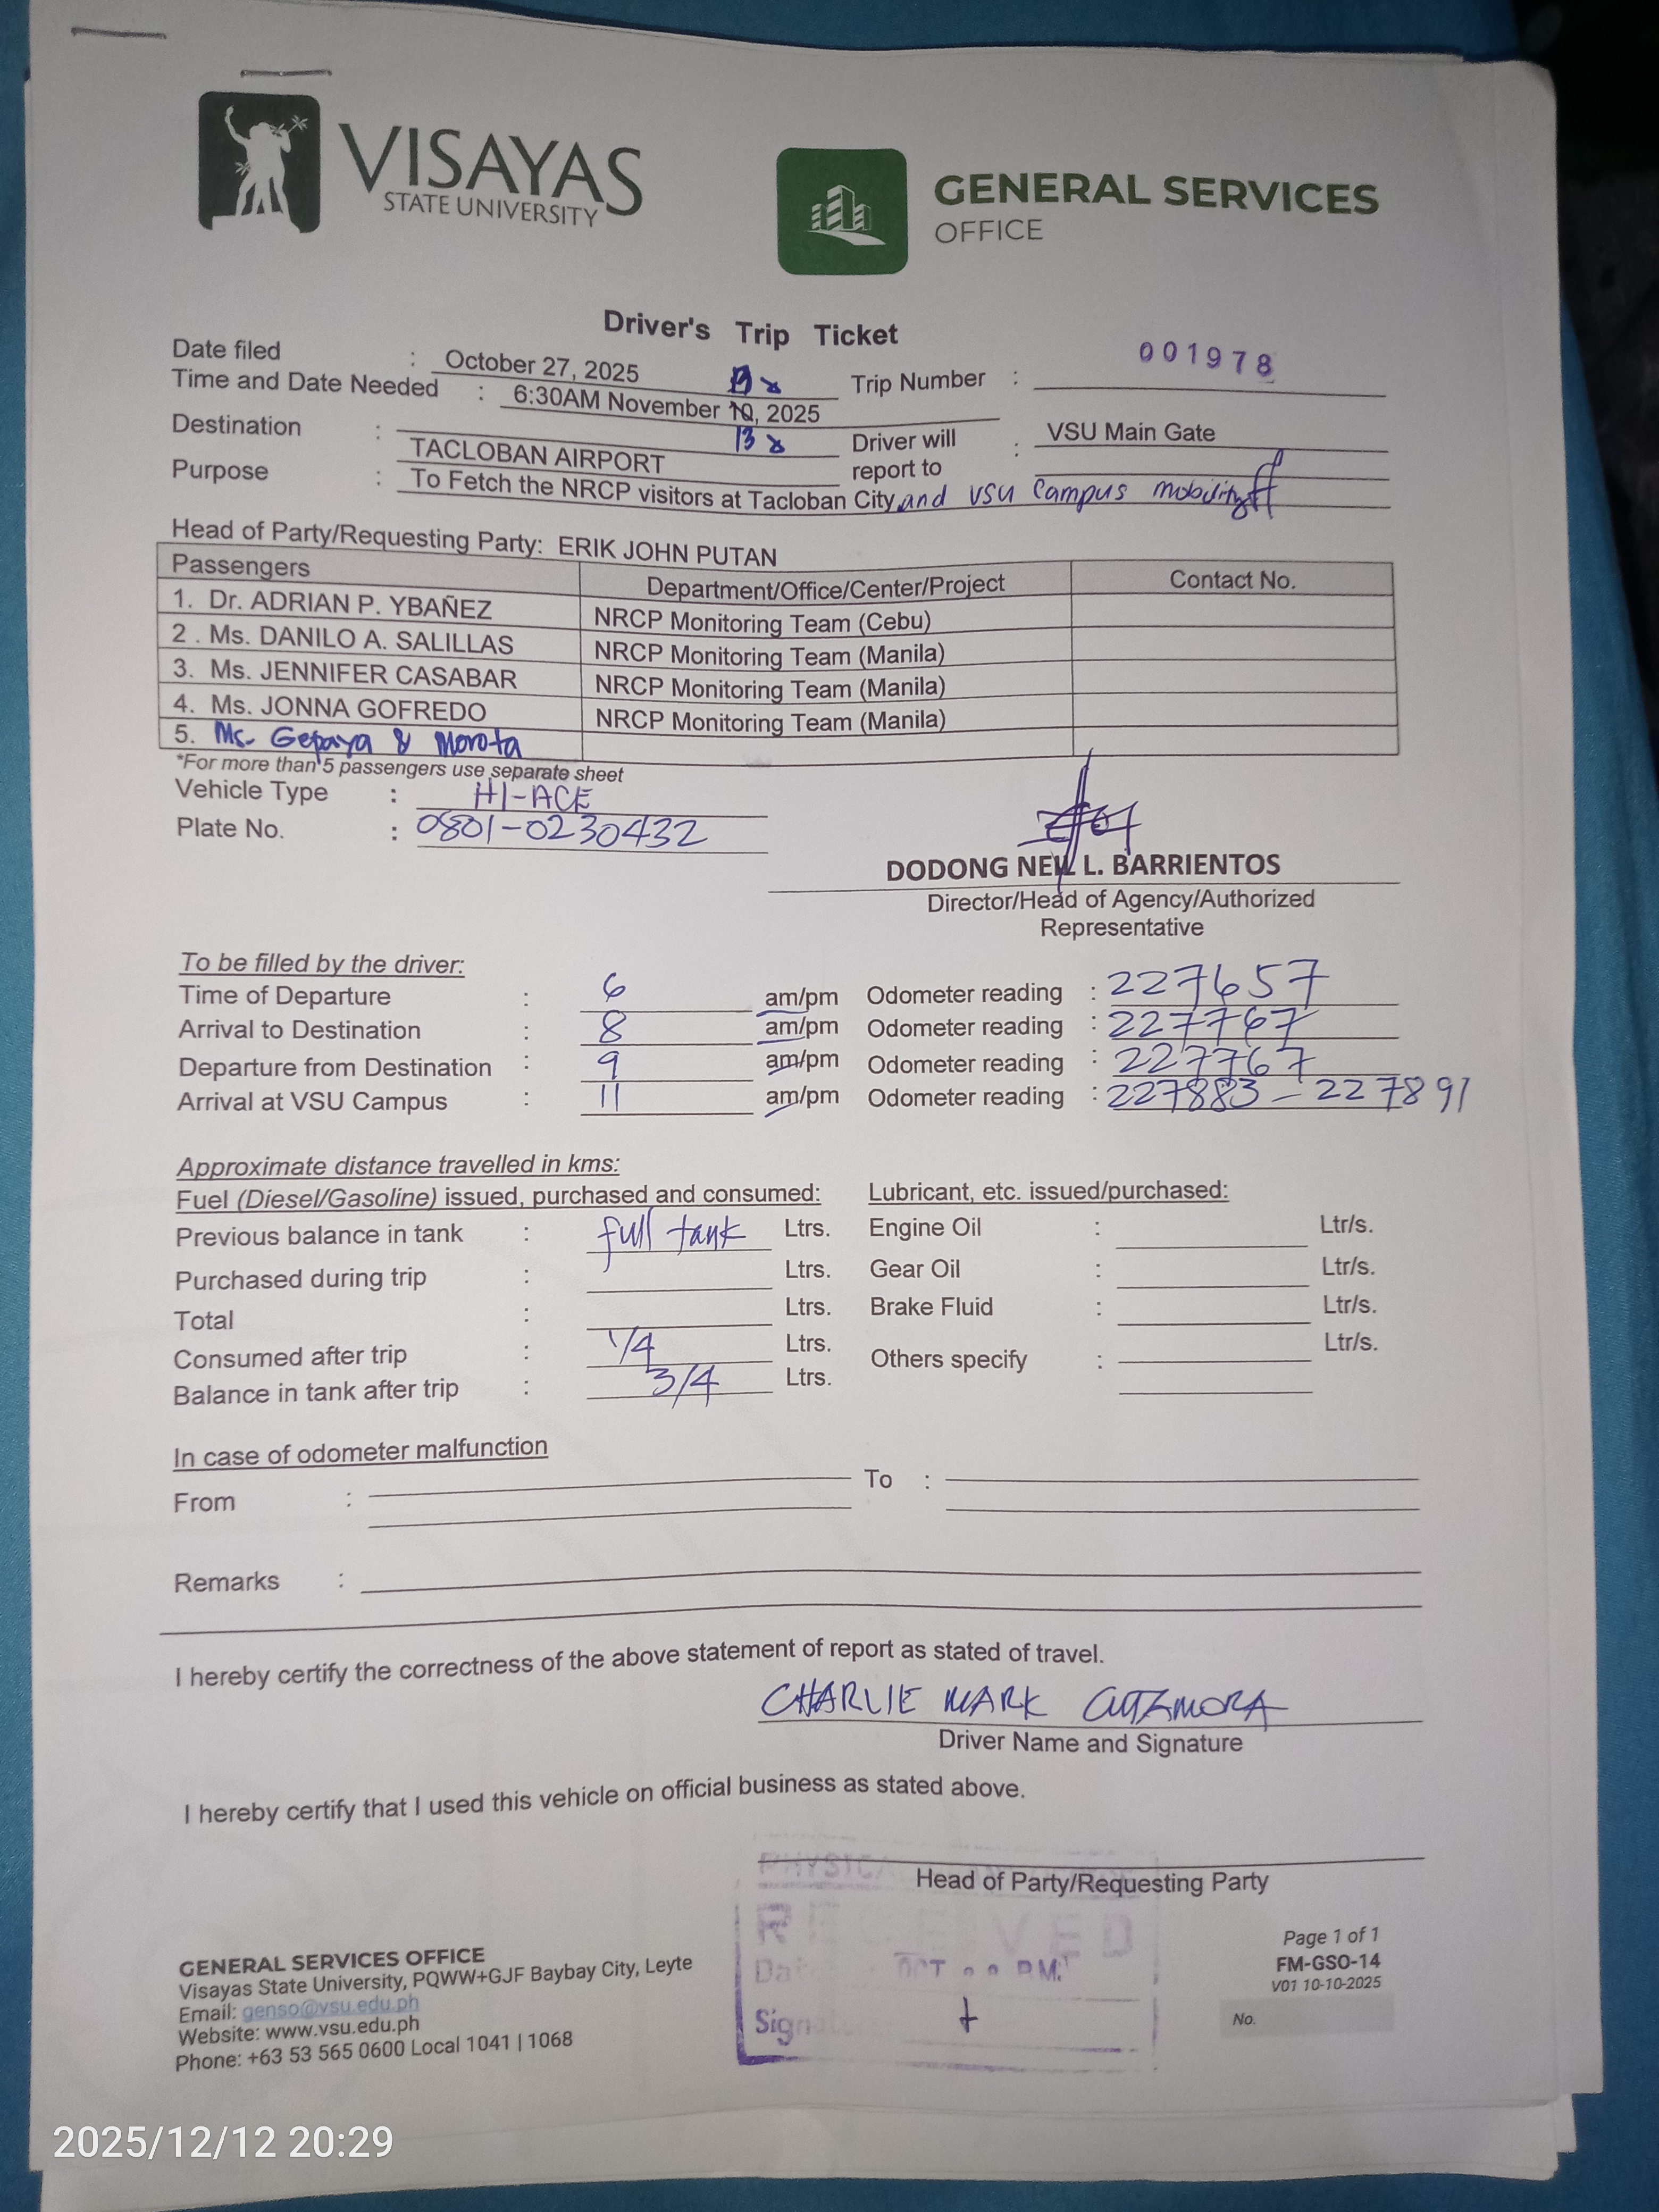 VISAYAS
STATE UNIVERSITY
GENERAL SERVICES
OFFICE
Driver's Trip Ticket
Date filed : October 27, 2025
Trip Number : 001978
Time and Date Needed : 6:30AM November 10, 2025
13
Destination : TACLOBAN AIRPORT
Driver will report to : VSU Main Gate
Purpose : To Fetch the NRCP visitors at Tacloban City and VSU Campus mobility
Head of Party/Requesting Party: ERIK JOHN PUTAN
Passengers Department/Office/Center/Project Contact No.
1. Dr. ADRIAN P. YBAÑEZ NRCP Monitoring Team (Cebu)
2 . Ms. DANILO A. SALILLAS NRCP Monitoring Team (Manila)
3. Ms. JENNIFER CASABAR NRCP Monitoring Team (Manila)
4. Ms. JONNA GOFREDO NRCP Monitoring Team (Manila)
5. Ms. Gepaya & Morota
*For more than 5 passengers use separate sheet
Vehicle Type : HI-ACE
Plate No. : 0801-0230432
DODONG NEIL L. BARRIENTOS
Director/Head of Agency/Authorized
Representative
To be filled by the driver:
Time of Departure : 6 am/pm Odometer reading : 227657
Arrival to Destination : 8 am/pm Odometer reading : 227767
Departure from Destination : 9 am/pm Odometer reading : 227767
Arrival at VSU Campus : 11 am/pm Odometer reading : 227883 - 227891
Approximate distance travelled in kms:
Fuel (Diesel/Gasoline) issued, purchased and consumed: Lubricant, etc. issued/purchased:
Previous balance in tank : full tank Ltrs. Engine Oil : Ltr/s.
Purchased during trip : Ltrs. Gear Oil : Ltr/s.
Total : Ltrs. Brake Fluid : Ltr/s.
Consumed after trip : 1/4 Ltrs. Others specify : Ltr/s.
Balance in tank after trip : 3/4 Ltrs.
In case of odometer malfunction
From : To :
Remarks :
I hereby certify the correctness of the above statement of report as stated of travel.
CHARLIE MARK
Driver Name and Signature
I hereby certify that I used this vehicle on official business as stated above.
Head of Party/Requesting Party
RECEIVED
GENERAL SERVICES OFFICE
Visayas State University, PQWW+GJF Baybay City, Leyte
Email: genso@vsu.edu.ph
Website: www.vsu.edu.ph
Phone: +63 53 565 0600 Local 1041 | 1068
Page 1 of 1
FM-GSO-14
V01 10-10-2025
No.
2025/12/12 20:29